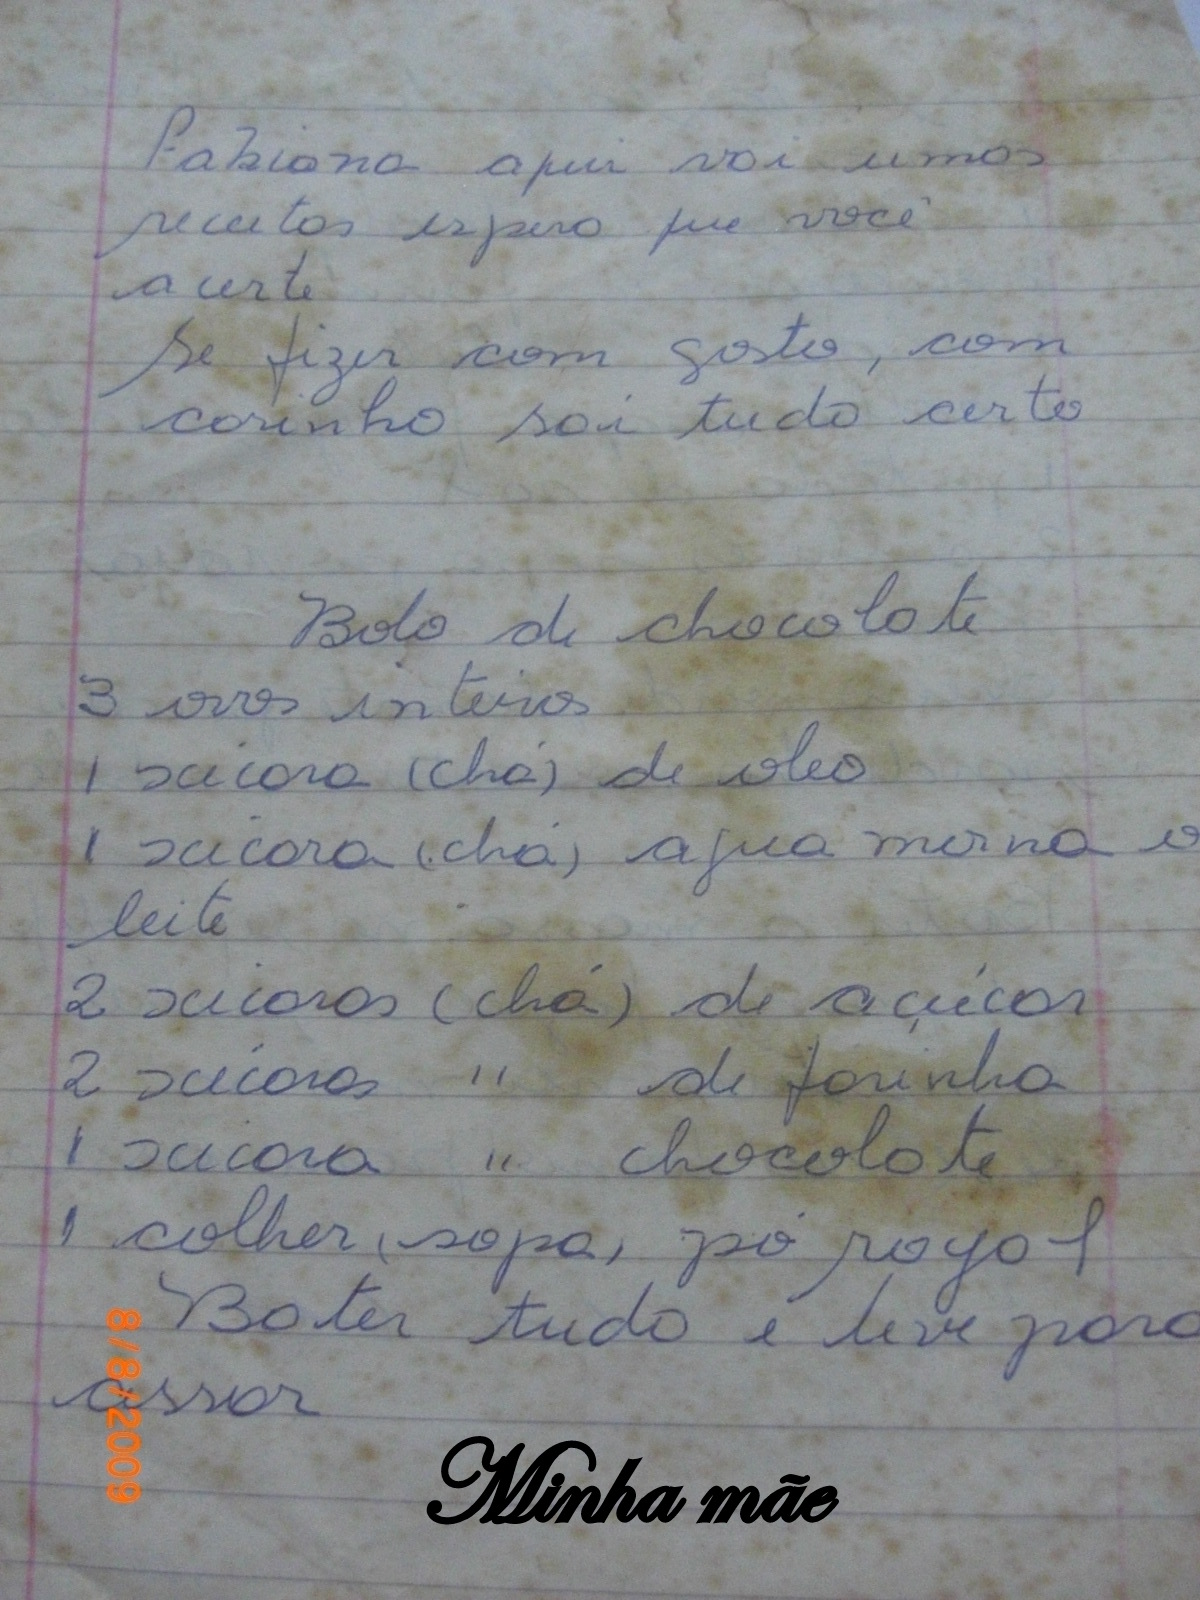 Fabiana aqui vai umas
receitas espero que você
acerte
Se fizer com gosto, com
carinho sai tudo certo
Bolo de chocolate
3 ovos inteiros
1 xícara (chá) de oleo
1 xícara (chá) agua morna o
leite
2 xícaras (chá) de açúcar
2 xícaras " de farinha
1 xícara " chocolate
1 colher (sopa) pó royal
Bater tudo e leve para
assar
8/8/2009
Minha mãe